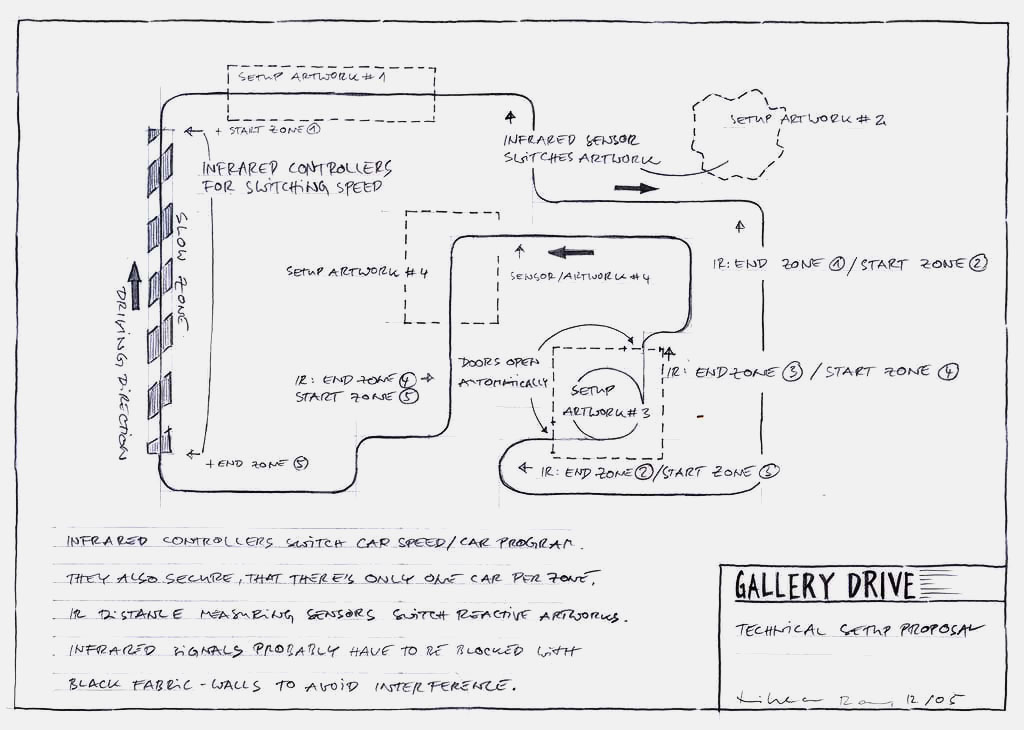 SETUP ARTWORK #1
+ START ZONE ①
INFRARED CONTROLLERS
FOR SWITCHING SPEED
INFRARED SENSOR
SWITCHES ARTWORK
SETUP ARTWORK #2
SLOW ZONE
DRIVING DIRECTION
SETUP ARTWORK #4
SENSOR/ARTWORK #4
IR: END ZONE ①/START ZONE ②
DOORS OPEN
AUTOMATICALLY
IR: END ZONE ③ / START ZONE ④
IR: END ZONE ④
START ZONE ⑤
SETUP
ARTWORK #3
+ END ZONE ⑤
IR: END ZONE ②/START ZONE ③
INFRARED CONTROLLERS SWITCH CAR SPEED/CAR PROGRAM.
THEY ALSO SECURE, THAT THERE'S ONLY ONE CAR PER ZONE.
IR DISTANCE MEASURING SENSORS SWITCH REACTIVE ARTWORKS.
INFRARED SIGNALS PROBABLY HAVE TO BE BLOCKED WITH
BLACK FABRIC-WALLS TO AVOID INTERFERENCE.
GALLERY DRIVE
TECHNICAL SETUP PROPOSAL
12/05